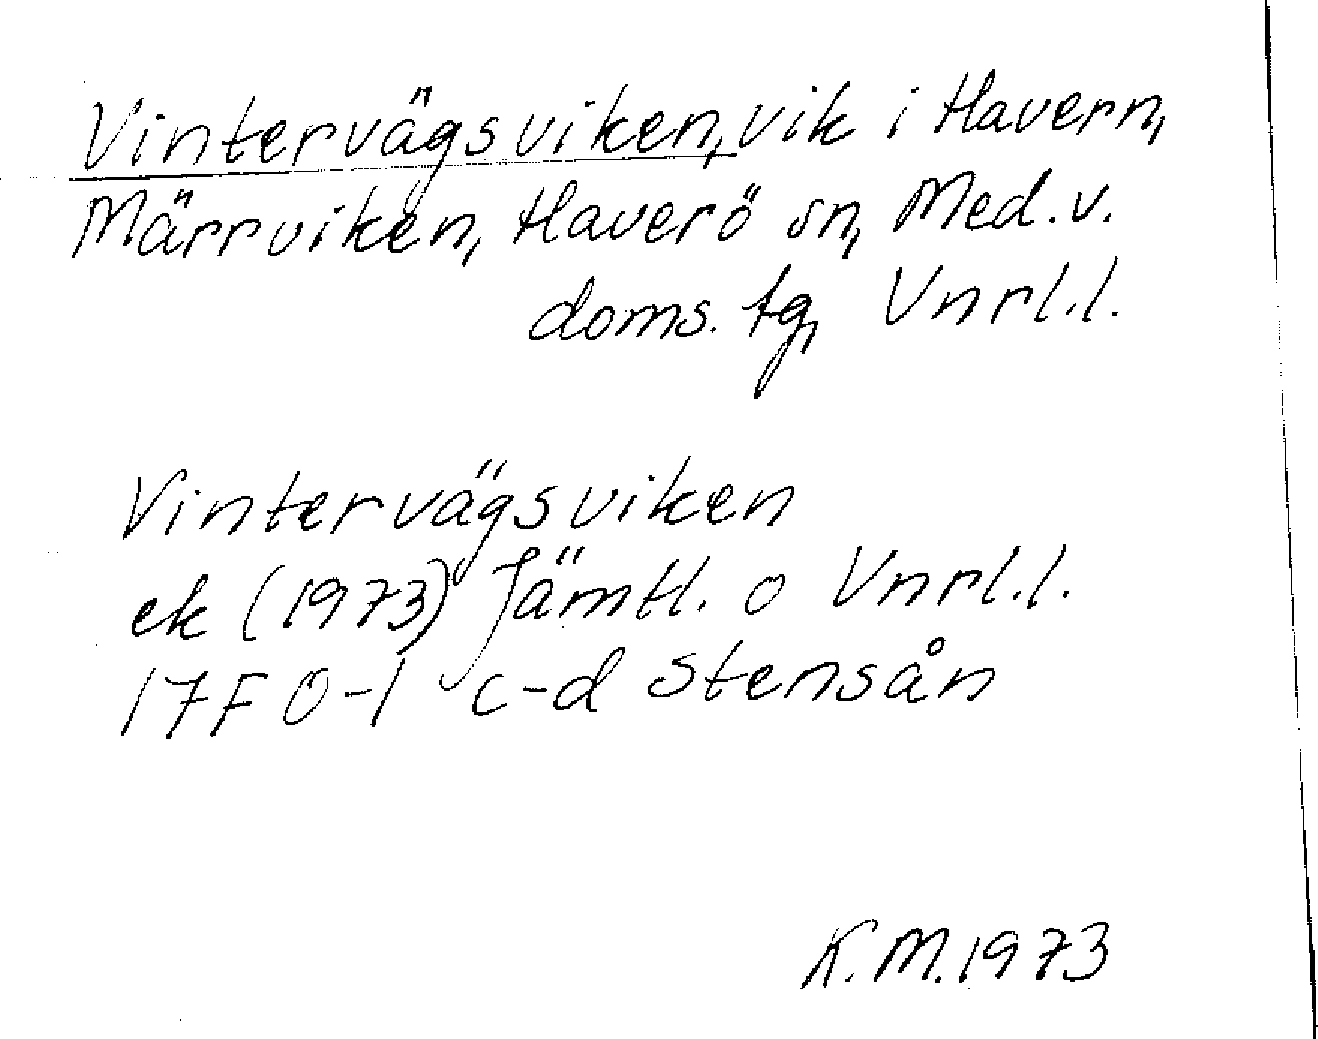 Vintervägsviken, vik i Havern,
Märrviken, Haverö sn, Med. v.
doms. tg, Vnrl.l.
Vintervägsviken
ek (1973) Jämtl. o Vnrl.l.
17F 0-1 c-d Stensån
K.M. 1973